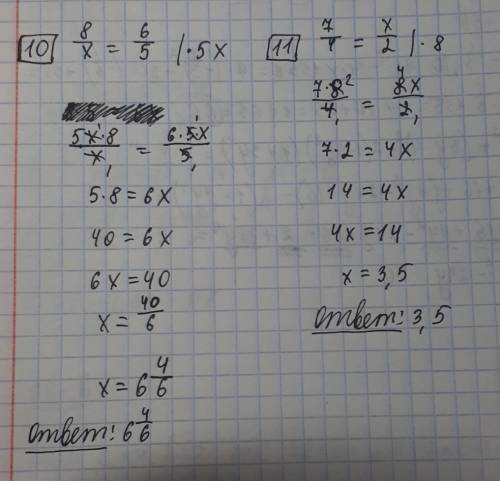 10 8/x = 6/5 | · 5x
5x · 8/x = 6 · 5x/5
5 · 8 = 6x
40 = 6x
6x = 40
x = 40/6
x = 6 4/6
Ответ: 6 4/6
11 7/4 = x/2 | · 8
7 · 8 2/4 1 = 4 8x/2 1
7 · 2 = 4x
14 = 4x
4x = 14
x = 3,5
Ответ: 3,5